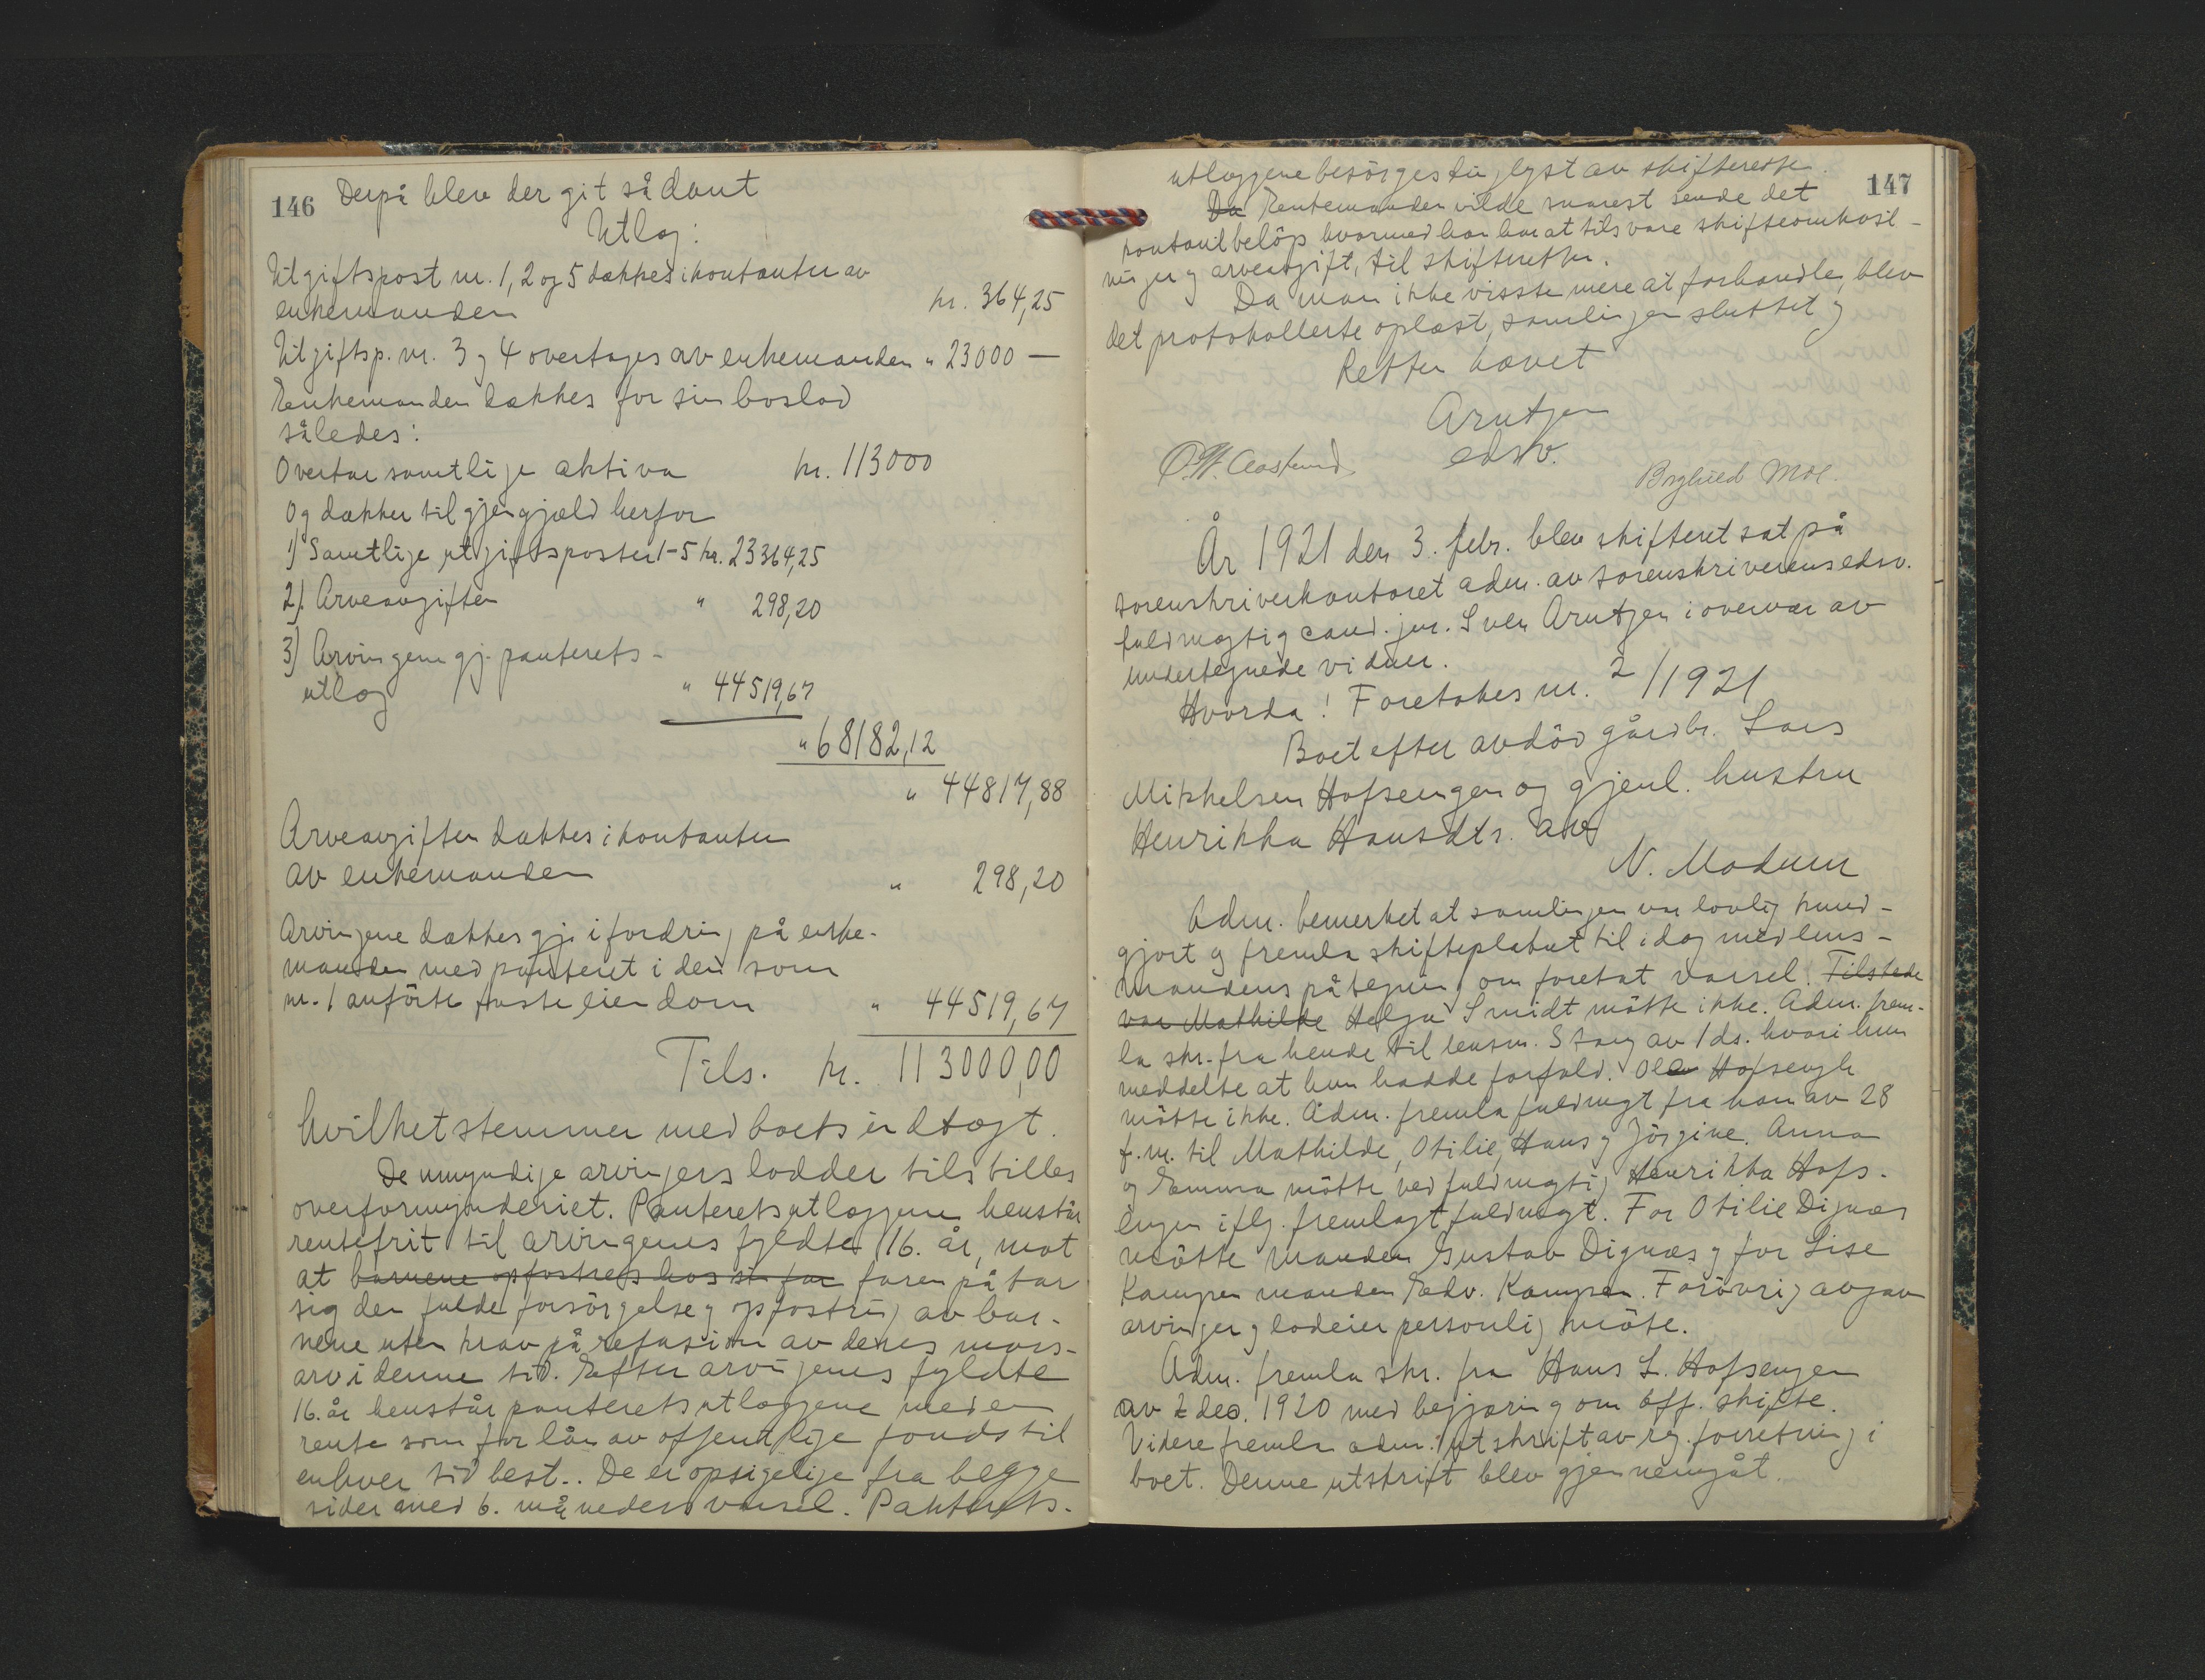 146
Derpå blev der git sådant
Utlæg:
Utgiftspost nr. 1, 2 og 5 dækkes i kontanter av
enkemanden kr. 364,25
Utgiftsp. nr. 3 og 4 overtages av enkemanden " 23000 —
Enkemanden dækkes for sin boslod
således:
Overtar samtlige aktiva kr. 113000
Og dækker til gjengjæld herfor
1) Samtlige utgiftsposter 1-5 kr. 23364,25
2) Arveavgiften " 298,20
3) Arvingene gj. panterets-
utlæg " 44519,67
" 68182,12
" 44817,88
Arveavgiften dækkes i kontanter
av enkemanden " 298,20
Arvingene dækkes gj. i fordring på enke-
manden med panteret i den som
nr. 1 anförte faste eiendom " 44519,67
Tils. kr. 113000,00
hvilket stemmer med boets indtægt.
De umyndige arvingers lodder tilstilles
overformynderiet. Panteretsutlæggene henstår
rentefrit til arvingenes fyldte 16. år, mot
at barnene opfostres hos sin far faren påtar
sig den fulde forsörgelse og opfostring av bar-
nene uten krav på refusion av deres mors-
arv i denne tid. Efter arvingenes fyldte
16. år henstår panteretsutlæggene med en
rente som for lån av offentlige fonds til
enhver tid best.. De er opsigelige fra begge
sider med 6. måneders varsel. Panterets-
147
utlæggene besörges tinglyst av skifteretten.
Da Enkemanden vilde snarest sende det
kontantbelöp hvormed han har at tilsvare skifteomkost-
ninger og arveavgift, til skifteretten.
Da man ikke visste mere at forhandle, blev
det protokollerte oplæst, samlingen sluttet og
Retten hævet
Arntzen
edsv.
O. W. Aaslund Borghild Moe.
År 1921 den 3. febr. blev skifteret sat på
sorenskriverkontoret adm. av sorenskriverens edsv.
fuldmægtig cand. jur. Sven Arntzen i overvær av
undertegnede vidner.
Hvorda! Foretokes nr. 2/1921
Boet efter avdöd gårdbr. Lars
Mikkelsen Hofsengen og gjenl. hustru
Henrikka Hansdtr. av
N. Modum
Adm. bemerket at samlingen var lovlig kund-
gjort og fremla skifteplakat til idag med lens-
mandens påtegning om foretat varsel. Tilstede
var Mathilde Helga Smidt mötte ikke. Adm. frem-
la skr. fra hende til lensm. Stang av 1 ds. hvori hun
meddelte at hun hadde forfald. Ole Hofsengen
mötte ikke. Adm. fremla fuldmagt fra ham av 28
f.m. til Mathilde, Otilie, Hans og Jörgine. Anna
og Emma mötte ved fuldmægtig Henrikka Hofs-
engen iflg. fremlagt fuldmagt. For Otilie Dignæs
mötte manden Gustav Dignæs og for Lise
Kampen manden Edv. Kampen. Forövrig avgav
arvinger og lodeier personlig möte.
Adm. fremla skr. fra Hans L. Hofsengen
av 2 des. 1920 med begjæring om off. skifte.
Videre fremla adm. utskrift av reg. forretning i
boet. Denne utskrift blev gjennemgåt.